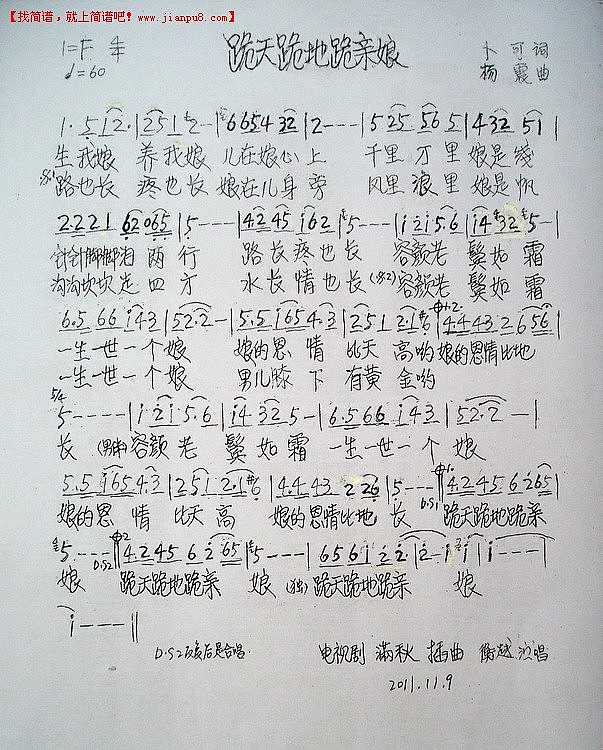 【找简谱，就上简谱吧！www.jianpu8.com】
1=F 4/4
♩=60
跪天跪地跪亲娘
卜可词
杨震曲
1. 5 1 2. | 2 5 1 2 - | 6 6 5 4 3 2 | 2 - - - | 5 2 5 5 6 5 | 4 3 2 5 1 |
生我娘 养我娘 儿在娘心上 千里万里娘是线
路也长 疼也长 娘在儿身旁 风里浪里娘是帆
2 2 2 1 6 2 0 6 5 | 5 - - - | 4 2 4 5 1 6 2 | 5 - - - | 1 2 1 5. 6 | 1 4 3 2 5 - |
针针脚脚泪两行 路长疼也长 容颜老 鬓如霜
沟沟坎坎走四方 水长情也长 容颜老 鬓如霜
6. 5 6 6 1 4 3 | 5 2. 2 - | 5. 5 1 6 5 4. 3 | 2 5 1 2. 1 6 | 4. 4 4 3 2 6 5 6 |
一生一世一个娘 娘的恩情比天高哟娘的恩情比地
一生一世一个娘 男儿膝下有黄金哟
5/4
5 - - - - | 1 2 1 5. 6 | 1 4 3 2 5 - | 6. 5 6 6 1 4 3 | 5 2. 2 - |
长 容颜老 鬓如霜 一生一世一个娘
5. 5 1 6 5 4. 3 | 2 5 1 2. 1 6 | 4. 4 4 3 2 2 6 | 5 - - - | 4. 2 4 5 6 2 6 5 |
D.S1
娘的恩情比天高 娘的恩情比地长 跪天跪地跪亲
5. - - - | 4. 2 4 5 6 2 6 5 | 5 - - - | 6 5 6 1 2 2 | 2 - 1 1 | 1 - - - |
D.S2
娘 跪天跪地跪亲娘 (独)跪天跪地跪亲娘
1 - - - ||
电视剧 满秋 插曲 衡越演唱
2011.11.9